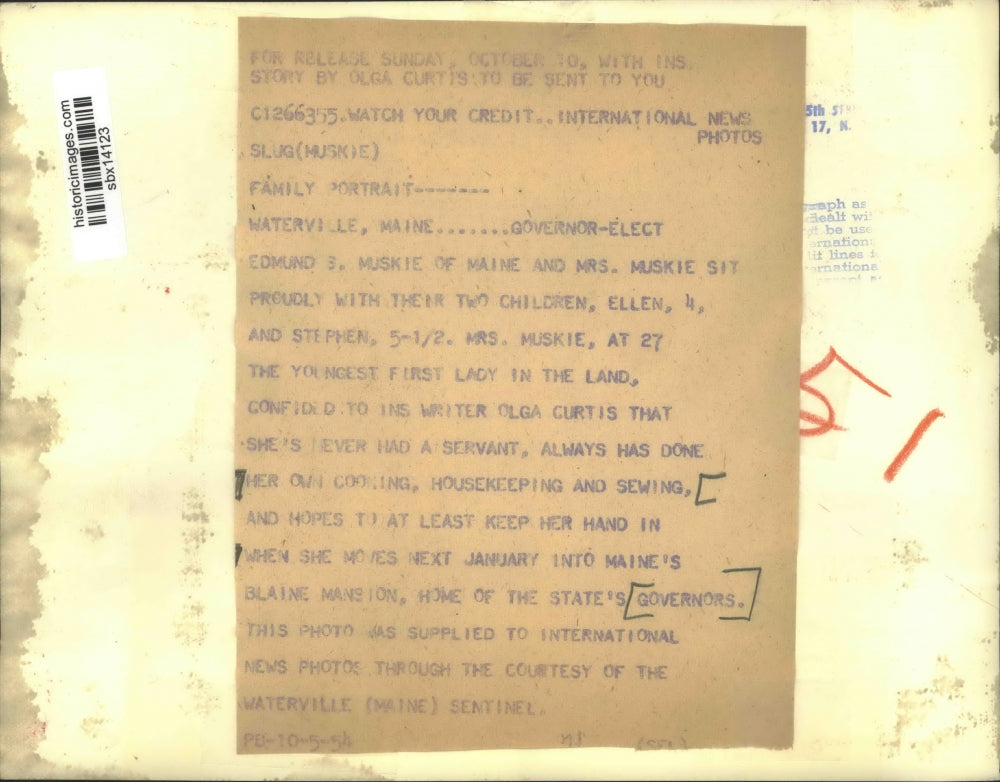 FOR RELEASE SUNDAY, OCTOBER 10, WITH INS
STORY BY OLGA CURTIS TO BE SENT TO YOU
C1266355.WATCH YOUR CREDIT..INTERNATIONAL NEWS
PHOTOS
SLUG(MUSKIE)
FAMILY PORTRAIT-------
WATERVILLE, MAINE.......GOVERNOR-ELECT
EDMUND S. MUSKIE OF MAINE AND MRS. MUSKIE SIT
PROUDLY WITH THEIR TWO CHILDREN, ELLEN, 4,
AND STEPHEN, 5-1/2. MRS. MUSKIE, AT 27
THE YOUNGEST FIRST LADY IN THE LAND,
CONFIDED TO INS WRITER OLGA CURTIS THAT
SHE'S NEVER HAD A SERVANT, ALWAYS HAS DONE
HER OWN COOKING, HOUSEKEEPING AND SEWING,
AND HOPES TO AT LEAST KEEP HER HAND IN
WHEN SHE MOVES NEXT JANUARY INTO MAINE'S
BLAINE MANSION, HOME OF THE STATE'S GOVERNORS.
THIS PHOTO WAS SUPPLIED TO INTERNATIONAL
NEWS PHOTOS THROUGH THE COURTESY OF THE
WATERVILLE (MAINE) SENTINEL.
PB-10-5-54
historicimages.com
sbx14123
5th
17, N.
raph as
dealt wi
be use
ernation
lit lines
ernationa
51